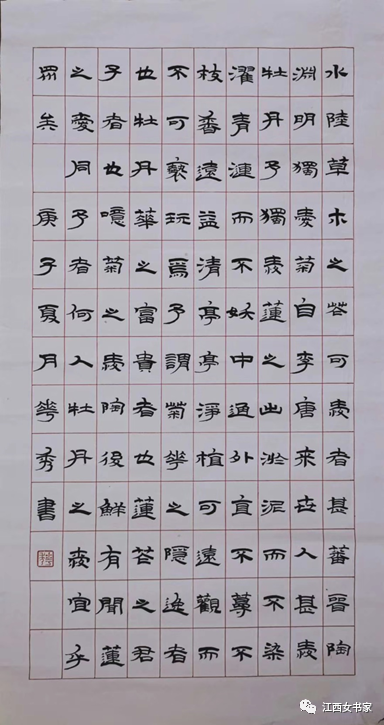 水陸草木之花可愛者甚蕃晉陶
淵明獨愛菊自李唐來世人甚愛
牡丹予獨愛蓮之出淤泥而不染
濯青漣而不妖中通外直不蔓不
枝香遠益清亭亭淨植可遠觀而
不可褻玩焉予謂菊華之隱逸者
也牡丹華之富貴者也蓮花之君
子者也噫菊之愛陶後鮮有聞蓮
之愛同予者何人牡丹之愛宜乎
眾矣 庚子夏月華秀書
江西女书家